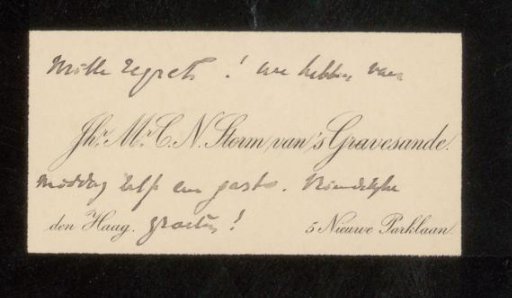 Mille regrets! we hebben van
Jhr. Mr. C. N. Storm van 's Gravesande.
middag zelf een gast. Vriendelijke
den Haag. groeten! 5 Nieuwe Parklaan.